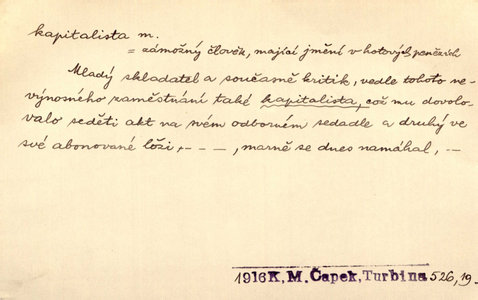 kapitalista m.
= zámožný člověk, mající jmění v hotových penězích
Mladý skladatel a současně kritik, vedle tohoto ne-
výnosného zaměstnání také kapitalista, což mu dovolo-
valo seděti akt na svém odborném sedadle a druhý ve
své abonované lóži, - - - , marně se dnes namáhal, --
1916 K. M. Čapek, Turbina 526, 19-